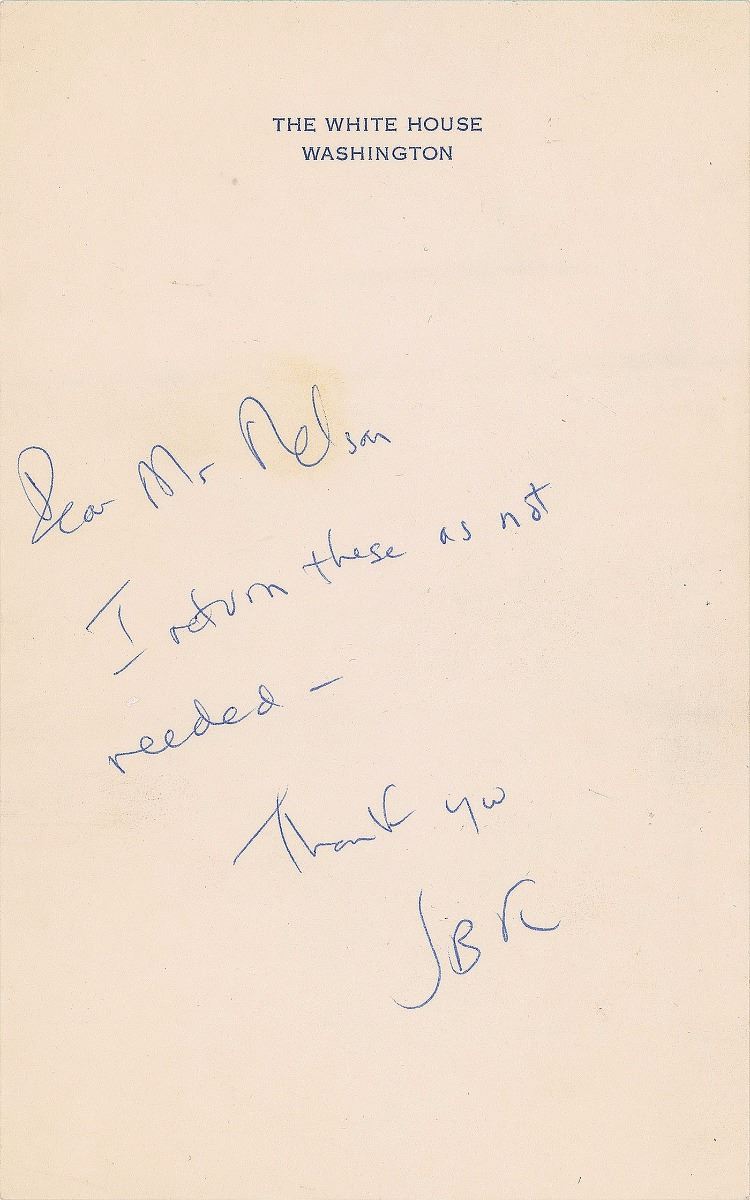 THE WHITE HOUSE
WASHINGTON
Dear Mr Nelson
I return these as not
needed –
Thank you
JBK